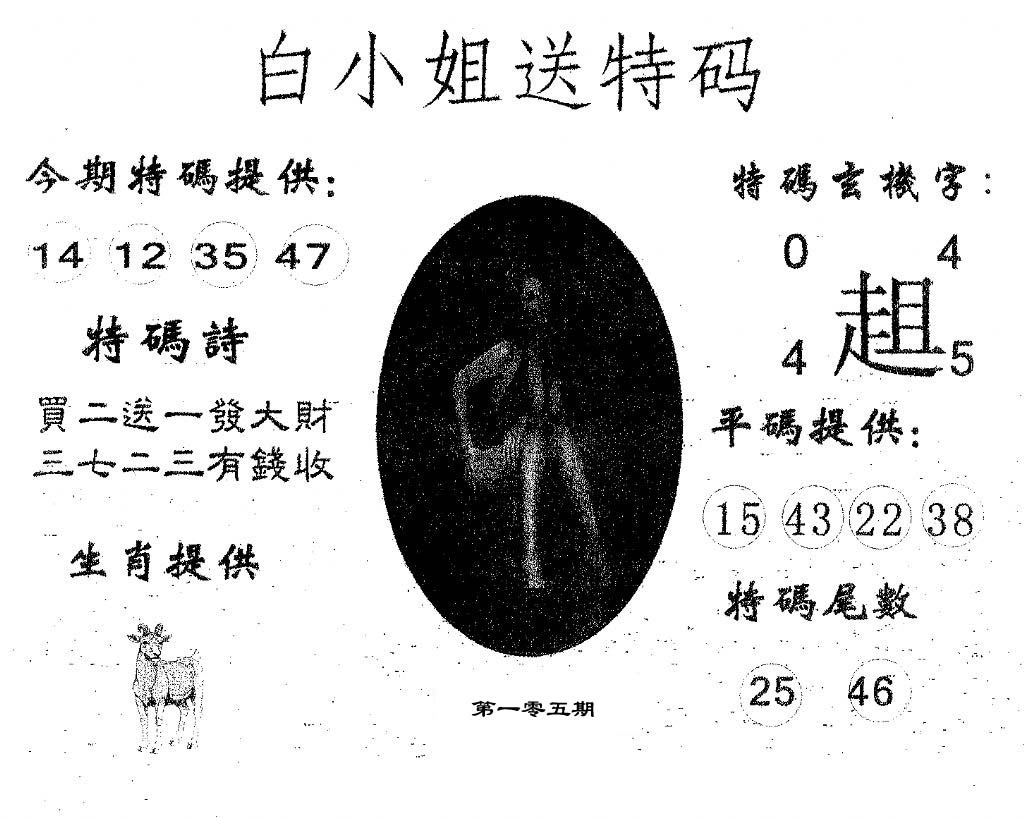 白小姐送特码
今期特碼提供:
14 12 35 47
特碼詩
買二送一發大財
三七二三有錢收
生肖提供
第一零五期
特碼玄機字:
0 4
趄
4 5
平碼提供:
15 43 22 38
特碼尾數
25 46